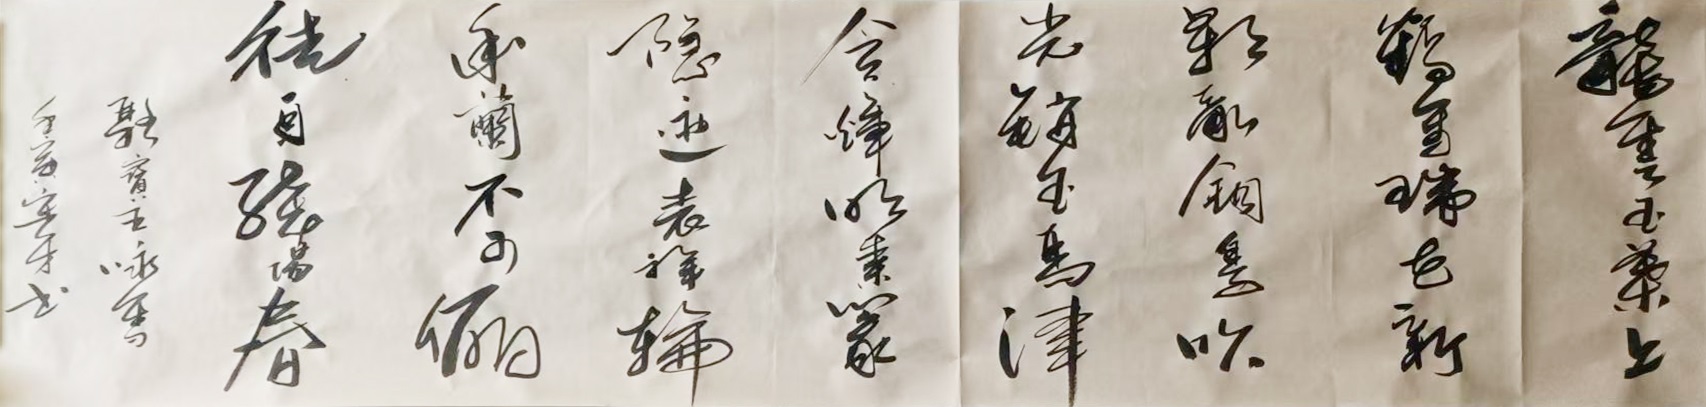 龍雲玉葉上
鶴雪瑞花新
影亂銅烏吹
光銷玉馬津
含輝明素篆
隱迹表祥輪
幽蘭不可儷
徒自繞陽春
駱賓王咏雪
书